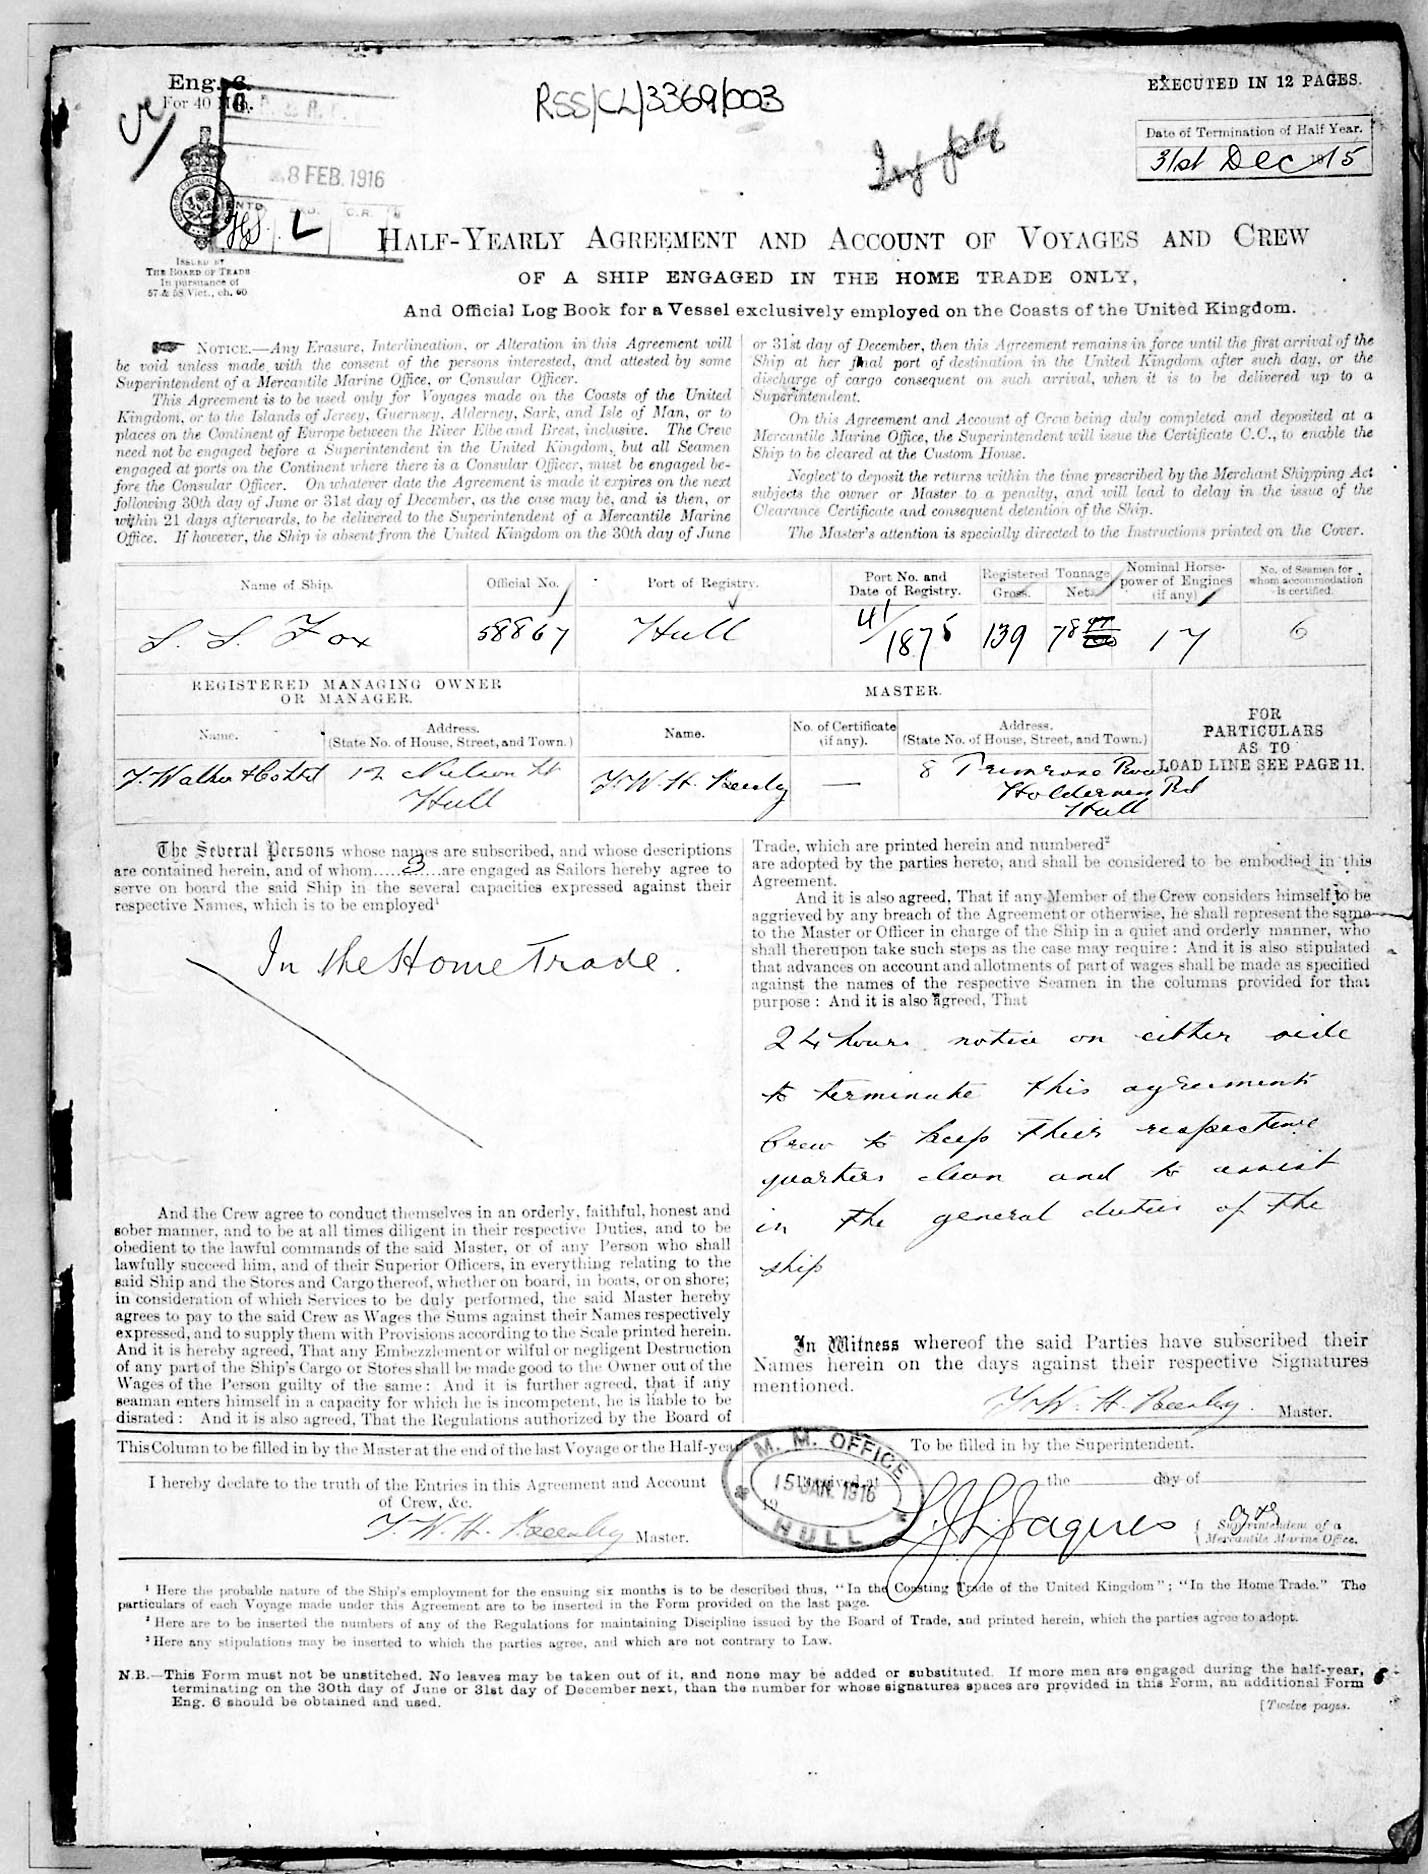 Eng. 6.
For 40 Men.
RSS/CL/3369/003
EXECUTED IN 12 PAGES.
Date of Termination of Half Year.
31st Dec 1915
8 FEB. 1916
C.R.
L
ISSUED BY
THE BOARD OF TRADE
In pursuance of
57 & 58 Vict., ch. 60
HALF-YEARLY AGREEMENT AND ACCOUNT OF VOYAGES AND CREW
OF A SHIP ENGAGED IN THE HOME TRADE ONLY,
And Official Log Book for a Vessel exclusively employed on the Coasts of the United Kingdom.
NOTICE.—Any Erasure, Interlineation, or Alteration in this Agreement will
be void unless made with the consent of the persons interested, and attested by some
Superintendent of a Mercantile Marine Office, or Consular Officer.
This Agreement is to be used only for Voyages made on the Coasts of the United
Kingdom, or to the Islands of Jersey, Guernsey, Alderney, Sark, and Isle of Man, or to
places on the Continent of Europe between the River Elbe and Brest, inclusive. The Crew
need not be engaged before a Superintendent in the United Kingdom, but all Seamen
engaged at ports on the Continent where there is a Consular Officer, must be engaged be-
fore the Consular Officer. On whatever date the Agreement is made it expires on the next
following 30th day of June or 31st day of December, as the case may be, and is then, or
within 21 days afterwards, to be delivered to the Superintendent of a Mercantile Marine
Office. If however, the Ship is absent from the United Kingdom on the 30th day of June
or 31st day of December, then this Agreement remains in force until the first arrival of the
Ship at her final port of destination in the United Kingdom after such day, or the
discharge of cargo consequent on such arrival, when it is to be delivered up to a
Superintendent.
On this Agreement and Account of Crew being duly completed and deposited at a
Mercantile Marine Office, the Superintendent will issue the Certificate C.C., to enable the
Ship to be cleared at the Custom House.
Neglect to deposit the returns within the time prescribed by the Merchant Shipping Act
subjects the owner or Master to a penalty, and will lead to delay in the issue of the
Clearance Certificate and consequent detention of the Ship.
The Master's attention is specially directed to the Instructions printed on the Cover.
Name of Ship. Official No. Port of Registry. Port No. and Date of Registry. Registered Tonnage Gross. Net. Nominal Horse-power of Engines (if any) No. of Seamen for whom accommodation is certified.
S. S. Fox 58867 Hull 41/1875 139 78 97/100 17 6
REGISTERED MANAGING OWNER
OR MANAGER.
MASTER.
Name. Address. (State No. of House, Street, and Town.) Name. No. of Certificate (if any). Address. (State No. of House, Street, and Town.)
FOR
PARTICULARS
AS TO
LOAD LINE SEE PAGE 11.
T. Walker & Co Ltd 12 Nelson St
Hull
T. W. H. —
8 Primrose
Holderness Rd
Hull
The Several Persons whose names are subscribed, and whose descriptions
are contained herein, and of whom 3 are engaged as Sailors hereby agree to
serve on board the said Ship in the several capacities expressed against their
respective Names, which is to be employed¹
In the Home Trade.
And the Crew agree to conduct themselves in an orderly, faithful, honest and
sober manner, and to be at all times diligent in their respective Duties, and to be
obedient to the lawful commands of the said Master, or of any Person who shall
lawfully succeed him, and of their Superior Officers, in everything relating to the
said Ship and the Stores and Cargo thereof, whether on board, in boats, or on shore;
in consideration of which Services to be duly performed, the said Master hereby
agrees to pay to the said Crew as Wages the Sums against their Names respectively
expressed, and to supply them with Provisions according to the Scale printed herein.
And it is hereby agreed, That any Embezzlement or wilful or negligent Destruction
of any part of the Ship's Cargo or Stores shall be made good to the Owner out of the
Wages of the Person guilty of the same: And it is further agreed, that if any
seaman enters himself in a capacity for which he is incompetent, he is liable to be
disrated: And it is also agreed, That the Regulations authorized by the Board of
Trade, which are printed herein and numbered²
are adopted by the parties hereto, and shall be considered to be embodied in this
Agreement.
And it is also agreed, That if any Member of the Crew considers himself to be
aggrieved by any breach of the Agreement or otherwise, he shall represent the same
to the Master or Officer in charge of the Ship in a quiet and orderly manner, who
shall thereupon take such steps as the case may require: And it is also stipulated
that advances on account and allotments of part of wages shall be made as specified
against the names of the respective Seamen in the columns provided for that
purpose: And it is also agreed, That
24 hours notice on either side
to terminate this agreement
Crew to keep their respective
quarters clean and to assist
in the general duties of the
ship
In Witness whereof the said Parties have subscribed their
Names herein on the days against their respective Signatures
mentioned.
T. W. H. Master.
This Column to be filled in by the Master at the end of the last Voyage or the Half-year
I hereby declare to the truth of the Entries in this Agreement and Account
of Crew, &c.
T. W. H. Master.
To be filled in by the Superintendent.
M. M. OFFICE
15 JAN. 1916
HULL
Received at the day of
19
Jaques
Superintendent of a
Mercantile Marine Office.
¹ Here the probable nature of the Ship's employment for the ensuing six months is to be described thus, "In the Coasting Trade of the United Kingdom"; "In the Home Trade." The
particulars of each Voyage made under this Agreement are to be inserted in the Form provided on the last page.
² Here are to be inserted the numbers of any of the Regulations for maintaining Discipline issued by the Board of Trade, and printed herein, which the parties agree to adopt.
³ Here any stipulations may be inserted to which the parties agree, and which are not contrary to Law.
N.B.—This Form must not be unstitched. No leaves may be taken out of it, and none may be added or substituted. If more men are engaged during the half-year,
terminating on the 30th day of June or 31st day of December next, than the number for whose signatures spaces are provided in this Form, an additional Form
Eng. 6 should be obtained and used.
[Twelve pages.